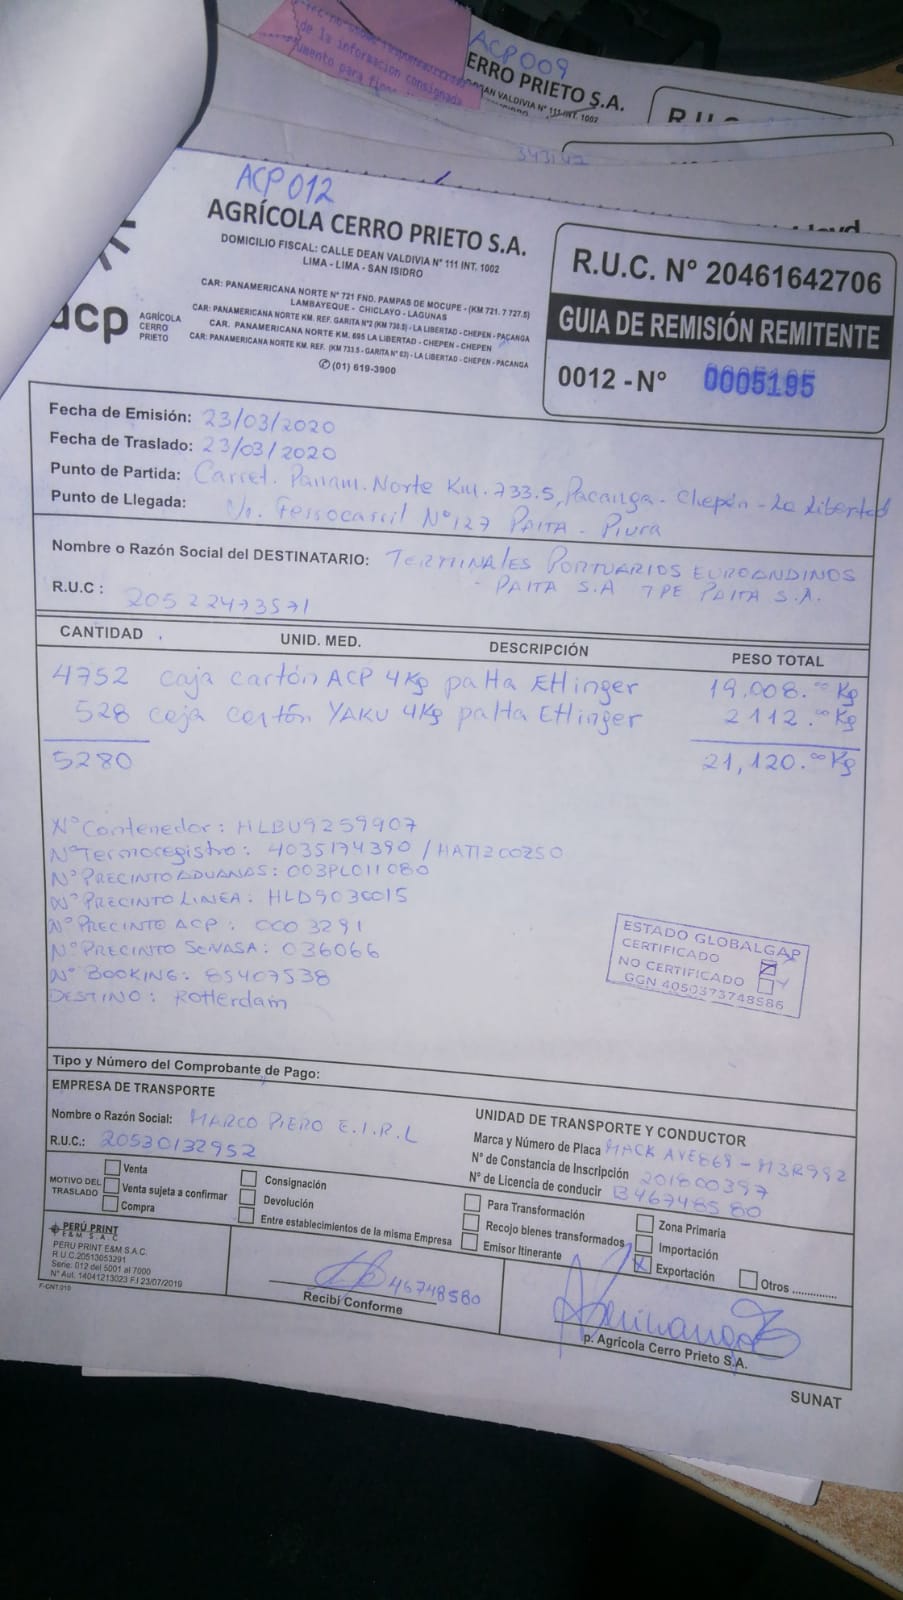 de la informacion consignada
umento para fine
ACP 009
ERRO PRIETO S.A.
EAN VALDIVIA N° 111 INT. 1002
R.U.C
343147
ACP 012
AGRÍCOLA CERRO PRIETO S.A.
DOMICILIO FISCAL: CALLE DEAN VALDIVIA N° 111 INT. 1002
LIMA - LIMA - SAN ISIDRO
CAR: PANAMERICANA NORTE N° 721 FND. PAMPAS DE MOCUPE - (KM 721. 7 727.5)
LAMBAYEQUE - CHICLAYO - LAGUNAS
CAR: PANAMERICANA NORTE KM. REF. GARITA N°2 (KM 730.5) - LA LIBERTAD - CHEPEN - PACANGA
CAR. PANAMERICANA NORTE KM. 695 LA LIBERTAD - CHEPEN - CHEPEN
CAR: PANAMERICANA NORTE KM. REF. (KM 733.5 - GARITA N° 03) - LA LIBERTAD - CHEPEN - PACANGA
(01) 619-3900
acp AGRÍCOLA CERRO PRIETO
R.U.C. N° 20461642706
GUIA DE REMISIÓN REMITENTE
0012 - N° 0005195
Fecha de Emisión: 23/03/2020
Fecha de Traslado: 23/03/2020
Punto de Partida: Carret. Panam. Norte Km. 733.5, Pacanga - Chepén - La Libertad
Punto de Llegada: Ferrocarril N° 127 PAITA - Piura
Nombre o Razón Social del DESTINATARIO: TERMINALES PORTUARIOS EUROANDINOS
- PAITA S.A TPE PAITA S.A.
R.U.C : 20522473571
CANTIDAD UNID. MED. DESCRIPCIÓN PESO TOTAL
4752 caja cartón ACP 4Kg palta Ettinger 19,008.00 Kg
528 caja cartón YAKU 4Kg palta Ettinger 2112.00 Kg
5280 21,120.00 Kg
N° Contenedor: HLBU9259907
N° Termoregistro: 4035174390 / HATI200250
N° PRECINTO ADUANAS: 003PL011080
N° PRECINTO LINEA: HLD9030015
N° PRECINTO ACP: 0003291
N° PRECINTO SENASA: 036066
N° BOOKING: 85407538
DESTINO: Rotterdam
ESTADO GLOBALGAP
CERTIFICADO
NO CERTIFICADO
GGN 4050373748586
Tipo y Número del Comprobante de Pago:
EMPRESA DE TRANSPORTE
Nombre o Razón Social: MARCO PIERO E.I.R.L
R.U.C.: 20530132952
UNIDAD DE TRANSPORTE Y CONDUCTOR
Marca y Número de Placa MACK AVE869 - M3R992
N° de Constancia de Inscripción 201800397
N° de Licencia de conducir B46748580
MOTIVO DEL TRASLADO
Venta
Venta sujeta a confirmar
Compra
Consignación
Devolución
Entre establecimientos de la misma Empresa
Para Transformación
Recojo bienes transformados
Emisor Itinerante
Zona Primaria
Importación
Exportación
Otros ..............
PERÚ PRINT
E&M S.A.C
PERU PRINT E&M S.A.C.
R.U.C.20513653291
Serie. 012 del 5001 al 7000
N° Aut. 14041213023 F.I 23/07/2019
F-CNT.010
46748580
Recibí Conforme
p. Agrícola Cerro Prieto S.A.
SUNAT